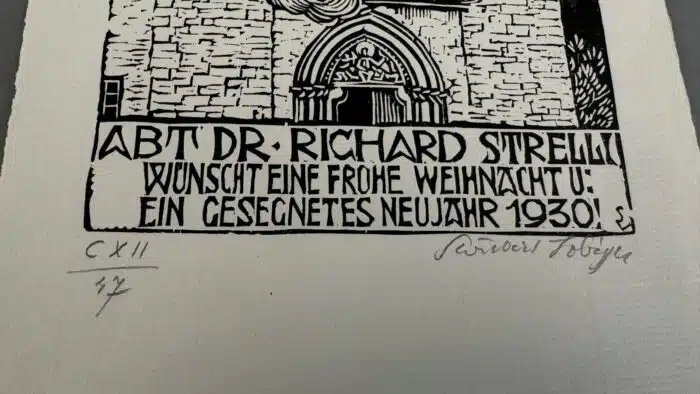 ABT DR · RICHARD STRELLI
WÜNSCHT EINE FROHE WEIHNACHT U:
EIN GESEGNETES NEUJAHR 1930!
CXII
47
Suitbert Lobisser